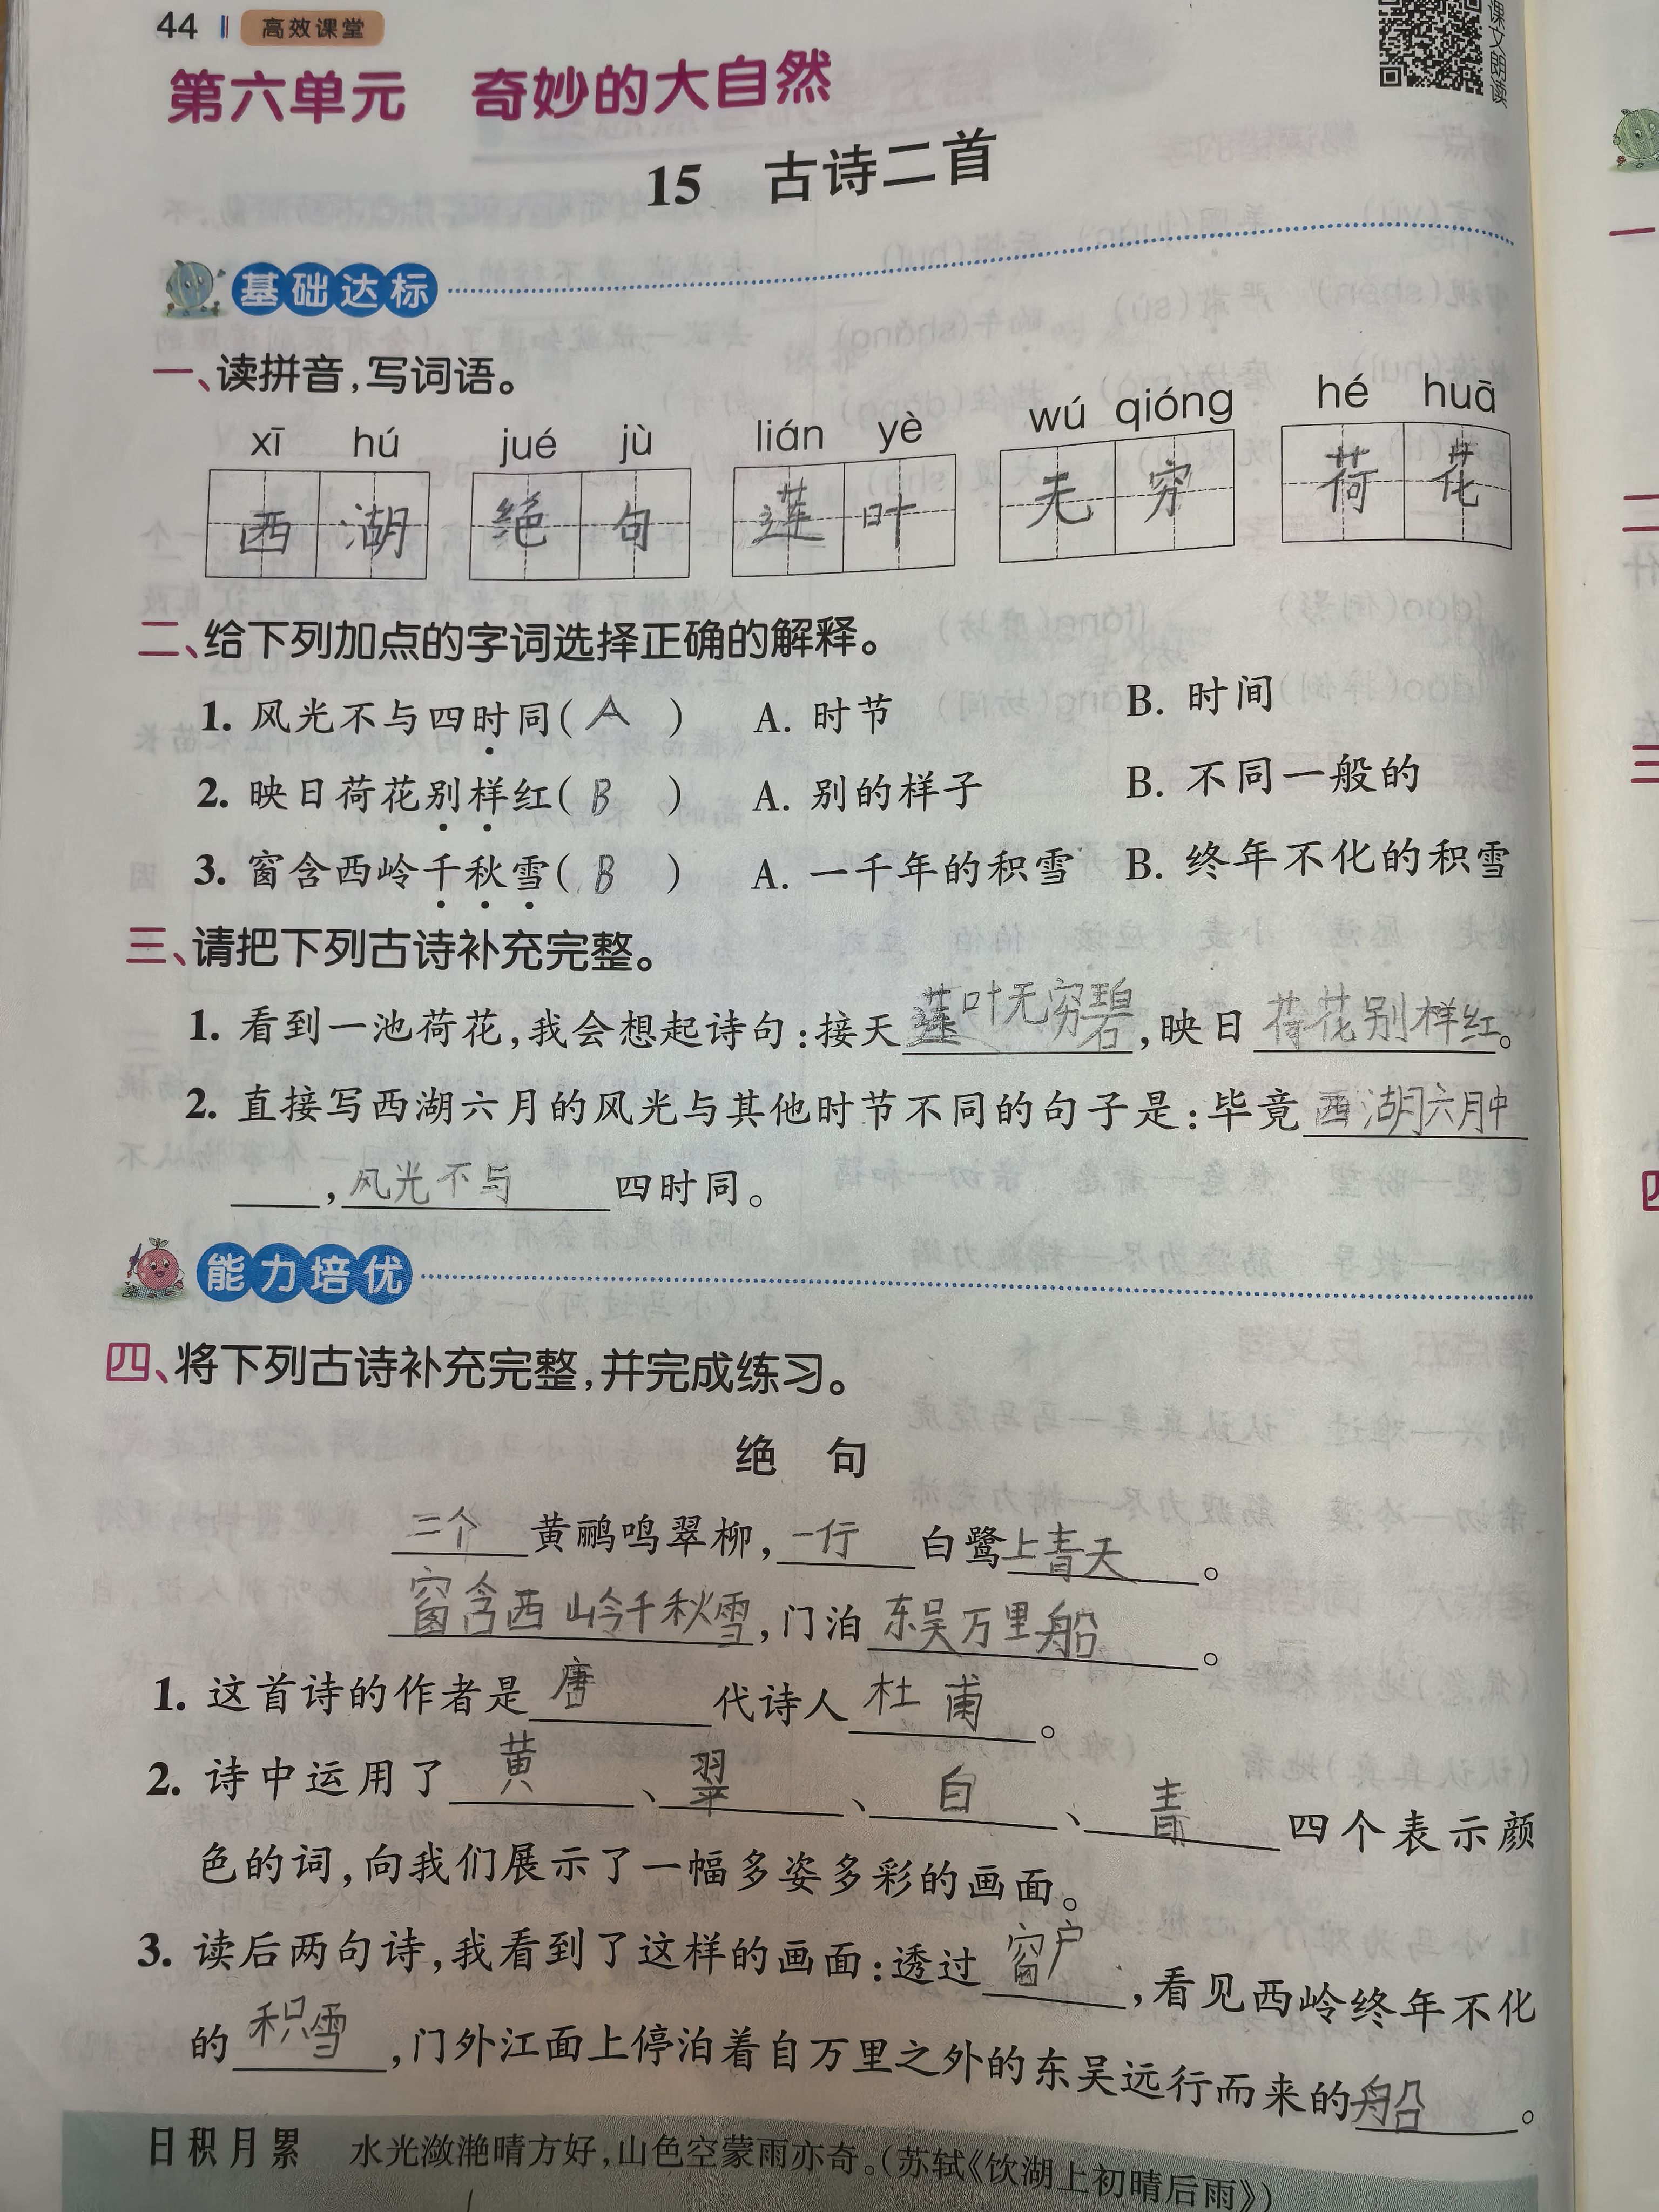 44 高效课堂
第六单元 奇妙的大自然
15 古诗二首
基础达标
一、读拼音,写词语。
xī hú jué jù lián yè wú qióng hé huā
西湖 绝句 莲叶 无穷 荷花
二、给下列加点的字词选择正确的解释。
1. 风光不与四时同( A ) A. 时节 B. 时间
2. 映日荷花别样红( B ) A. 别的样子 B. 不同一般的
3. 窗含西岭千秋雪( B ) A. 一千年的积雪 B. 终年不化的积雪
三、请把下列古诗补充完整。
1. 看到一池荷花,我会想起诗句:接天莲叶无穷碧,映日荷花别样红。
2. 直接写西湖六月的风光与其他时节不同的句子是:毕竟西湖六月中
,风光不与四时同。
能力培优
四、将下列古诗补充完整,并完成练习。
绝句
三个黄鹂鸣翠柳,一行白鹭上青天。
窗含西岭千秋雪,门泊东吴万里船。
1. 这首诗的作者是唐代诗人杜甫。
2. 诗中运用了黄、翠、白、青四个表示颜
色的词,向我们展示了一幅多姿多彩的画面。
3. 读后两句诗,我看到了这样的画面:透过窗户,看见西岭终年不化
的积雪,门外江面上停泊着自万里之外的东吴远行而来的船。
日积月累 水光潋滟晴方好,山色空蒙雨亦奇。(苏轼《饮湖上初晴后雨》)
一
二
三
四